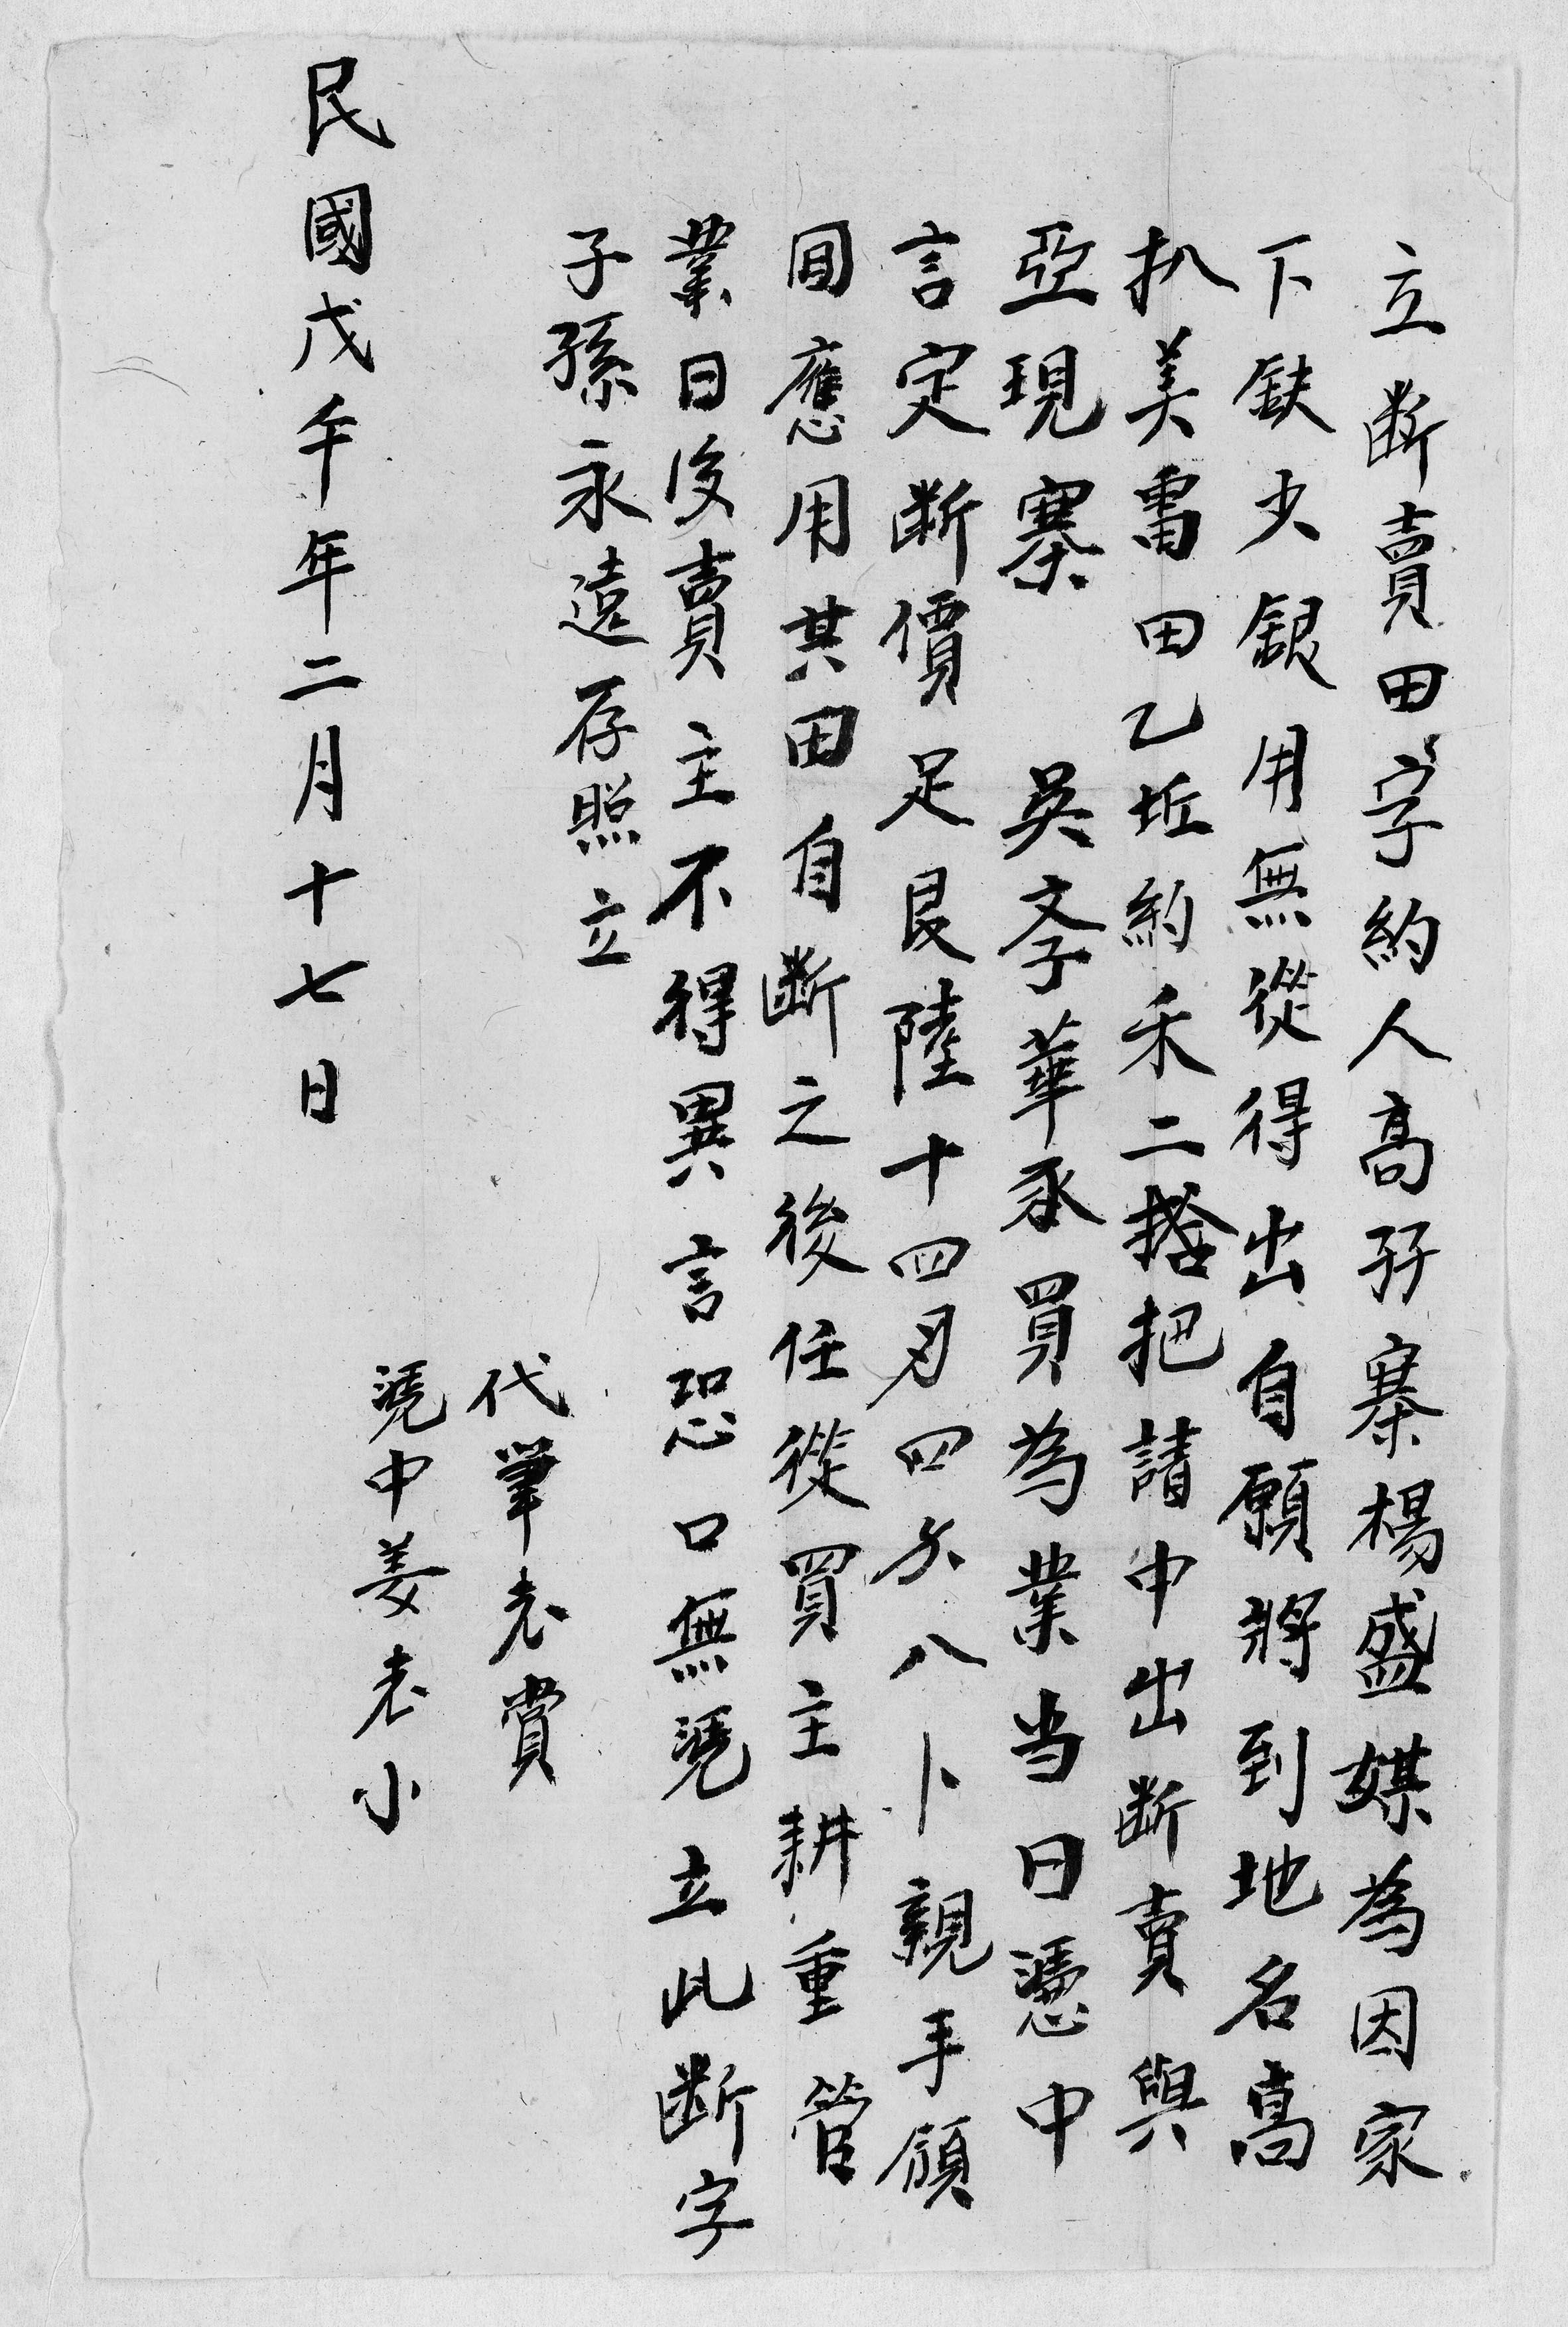 立断賣田字約人高孖寨楊盛媒為因家
下缺少銀用無從得出自願將到地名高
扒美雷田乙坵約禾二拾把請中出断賣與
亞現寨　吳孝華承買為業当日憑中
言定断價足艮陸十四刄四分八卜親手領
囬應用其田自断之後任從買主耕重管
業日後賣主不得異言恐口無凴立此断字
子孫永遠存照立
代筆老賞
凴中姜老小
民國戊午年二月十七日